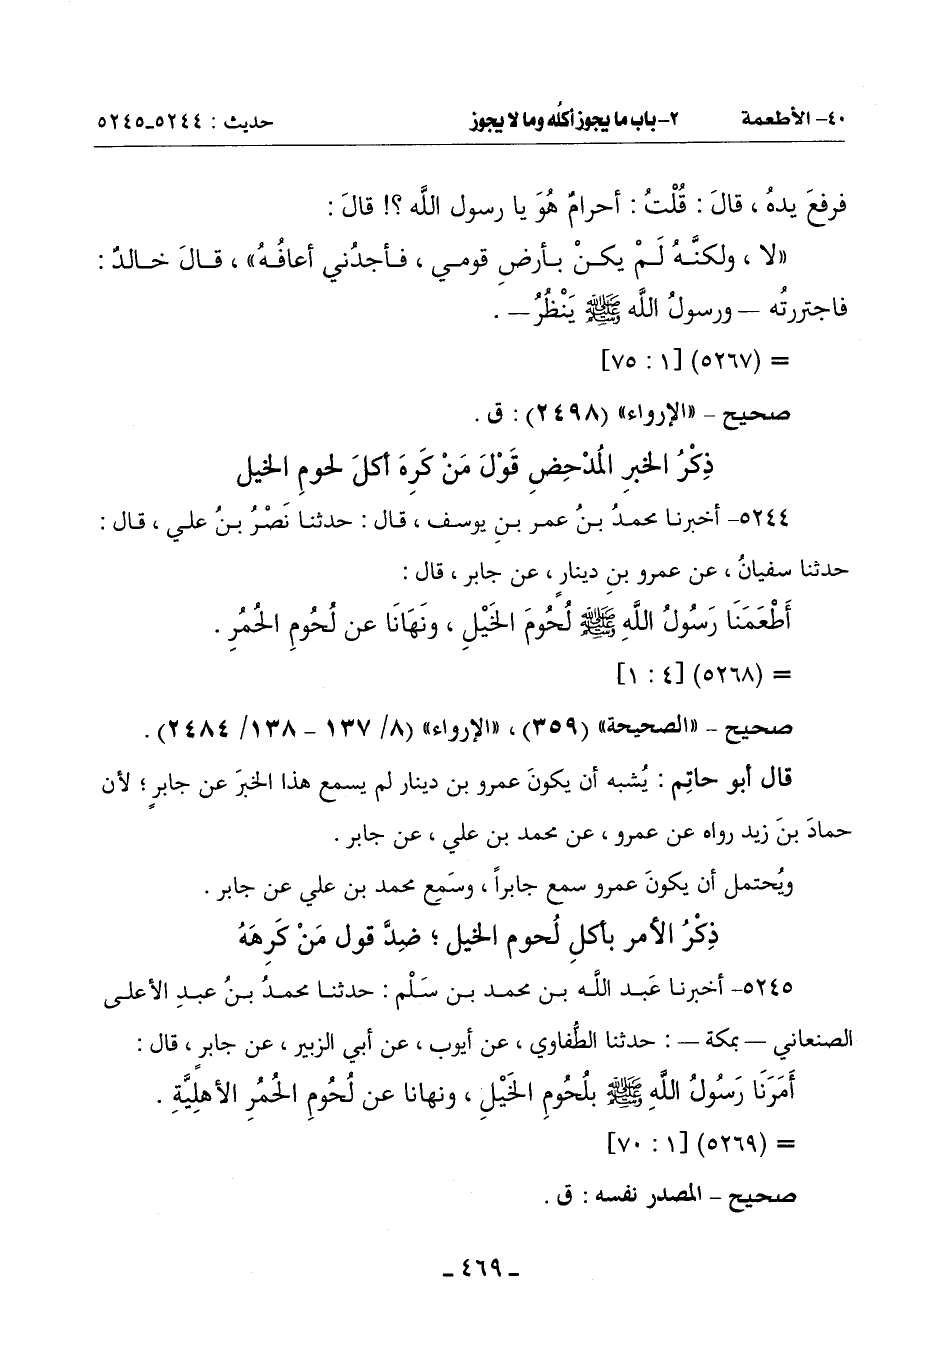 ٤٠- الأطعمة ٢- باب ما يجوز أكلُه وما لا يجوز حديث : ٥٢٤٤-٥٢٤٥
فرفعَ يدهُ ، قالَ : قُلْتُ : أحرامٌ هُوَ يا رسول اللَّه ؟! قالَ :
«لا ، ولكنَّهُ لَمْ يكنْ بأرضِ قومي ، فأجدُني أعافُهُ» ، قالَ خالدٌ :
فاجتررتُه — ورسولُ اللَّه ﷺ يَنْظُرُ— .
= (٥٢٦٧) [١ : ٧٥]
صحيح - «الإرواء» (٢٤٩٨) : ق .
ذِكْرُ الخبرِ المُدْحِضِ قَوْلَ مَنْ كَرِهَ أكلَ لحومِ الخيل
٥٢٤٤- أخبرنا محمدُ بنُ عمر بنِ يوسف ، قال : حدثنا نَصْرُ بنُ علي ، قال :
حدثنا سفيانُ ، عن عمرو بنِ دينارٍ ، عن جابر ، قال :
أَطْعَمَنَا رَسُولُ اللَّهِ ﷺ لُحُومَ الخَيْلِ ، ونَهَانَا عن لُحُومِ الحُمُرِ .
= (٥٢٦٨) [٤ : ١]
صحيح - «الصحيحة» (٣٥٩) ، «الإرواء» (٨/ ١٣٧ - ١٣٨/ ٢٤٨٤) .
قال أبو حاتِم : يُشبه أن يكونَ عمرو بن دينار لم يسمع هذا الخبرَ عن جابرٍ ؛ لأن
حمادَ بنَ زيد رواه عن عمرو ، عن محمد بن علي ، عن جابر .
ويُحتمل أن يكونَ عمرو سمع جابراً ، وسَمِع محمد بن علي عن جابر .
ذِكْرُ الأمر بأكلِ لُحوم الخيل ؛ ضِدَّ قول مَنْ كَرِهَهُ
٥٢٤٥- أخبرنا عَبد اللَّه بن محمد بن سَلْم : حدثنا محمدُ بنُ عبدِ الأعلى
الصنعاني — بمكة — : حدثنا الطُّفاوي ، عن أيوب ، عن أبي الزبير ، عن جابرٍ ، قال :
أَمَرَنَا رَسُولُ اللَّهِ ﷺ بلُحُومِ الخَيْلِ ، ونهانا عن لُحُومِ الحُمُرِ الأهلِيَّةِ .
= (٥٢٦٩) [١ : ٧٠]
صحيح - المصدر نفسه : ق .
- ٤٦٩ -